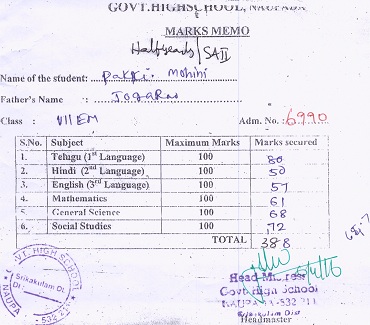 GOVT.HIGHSCHOOL, NAUPADA
MARKS MEMO
Halfyearly/SAII
Name of the student: Pakki. Mohini
Father's Name : JogaRao
Class : VII EM Adm. No. :6990
S.No. Subject Maximum Marks Marks secured
1. Telugu (1st Language) 100 80
2. Hindi (2nd Language) 100 50
3. English (3rd Language) 100 57
4. Mathematics 100 61
5. General Science 100 68
6. Social Studies 100 72
TOTAL 388
Head Mistress
Govt High School
NAUPADA -532 211
Srikakulam Dist
Headmaster
GOVT. HIGH SCHOOL
Srikakulam Dt.
NAUPADA - 532 211